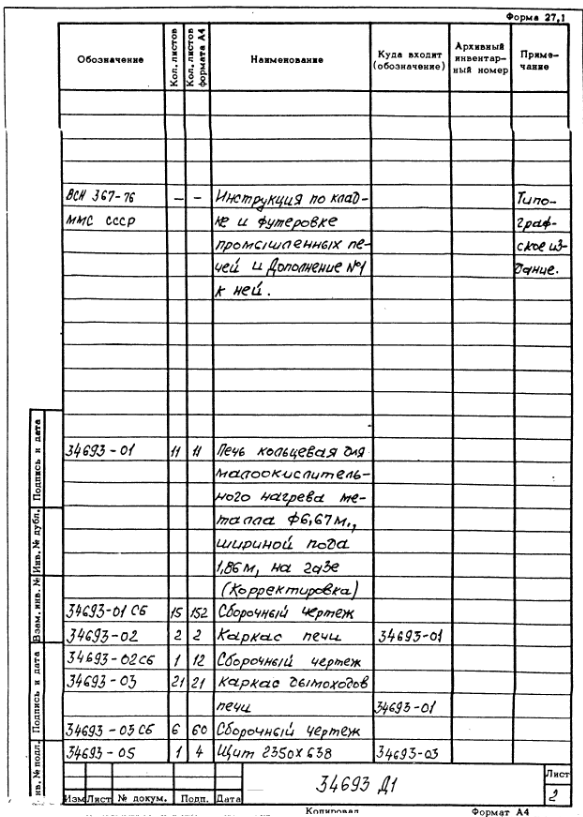 Форма 27,1
Обозначение Кол. листов Кол. листов формата А4 Наименование Куда входит (обозначение) Архивный инвентарный номер Примечание
ВСН 367-76 – – Инструкция по клад- Типо-
ММС СССР ке и футеровке граф-
промышленных пе- ское из-
чей и Дополнение №1 дание.
к ней.
34693-01 11 11 Печь кольцевая для
малоокислитель-
ного нагрева ме-
талла ф6,67м.,
шириной пода
1,86м, на газе
(Корректировка)
34693-01 СБ 15 152 Сборочный чертеж
34693-02 2 2 Каркас печи 34693-01
34693-02СБ 1 12 Сборочный чертеж
34693-03 21 21 Каркас дымоходов
печи 34693-01
34693-03 СБ 6 60 Сборочный чертеж
34693-05 1 4 Щит 2350х638 34693-03
Подпись и дата
Инв. № дубл.
Взам. инв. №
Подпись и дата
нв. № подл.
34693 Д1
Лист
2
Изм Лист № докум. Подп. Дата
Копировал Формат А4